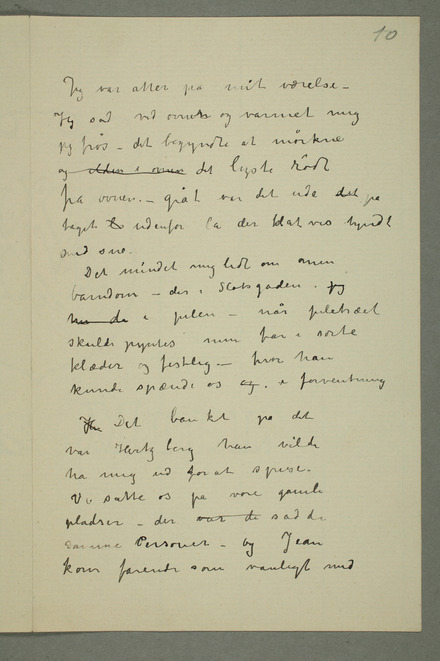 10
Jeg var atter på mit værelse –
Jeg sad ved ovnen og varmet mig
jeg frøs – det begyndte at mørkne
og ilden i ovnen det lyste rødt
fra ovnen. – gråt var det ude det på
taget udenfor la der klatvis tyndt
med sne.
Det mindet mig lidt om min
barndom – der i Slotsgaden. jeg
i julen – når juletræet
skulde pyntes min far i sorte
klæder og festlig – hvor han
kunde spænde os og. i forventning
Det banket på det
var Hertzberg han vilde
ha mig ud for at spise.
Vi satte os på vore gamle
pladser – der var de sad de
samme Personer – og Jean
kom farende som vanligt med